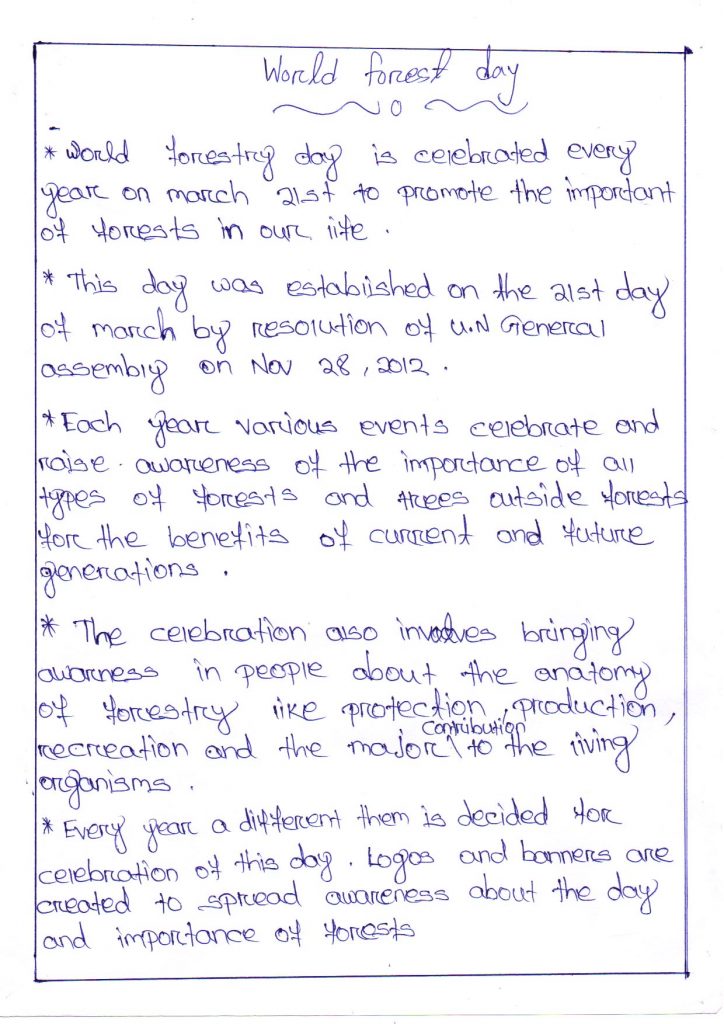 World forest day
* World forestry day is celebrated every
year on march 21st to promote the important
of forests in our life .
* This day was established on the 21st day
of march by resolution of U.N General
assembly on Nov 28, 2012 .
* Each year various events celebrate and
raise . awareness of the importance of all
types of forests and trees outside forests
for the benefits of current and future
generations .
* The celebration also involves bringing
awarness in people about the anatomy
of forestry like protection , production ,
recreation and the major contribution to the living
organisms .
* Every year a different them is decided for
celebration of this day . Logos and banners are
created to spread awareness about the day
and importance of forests